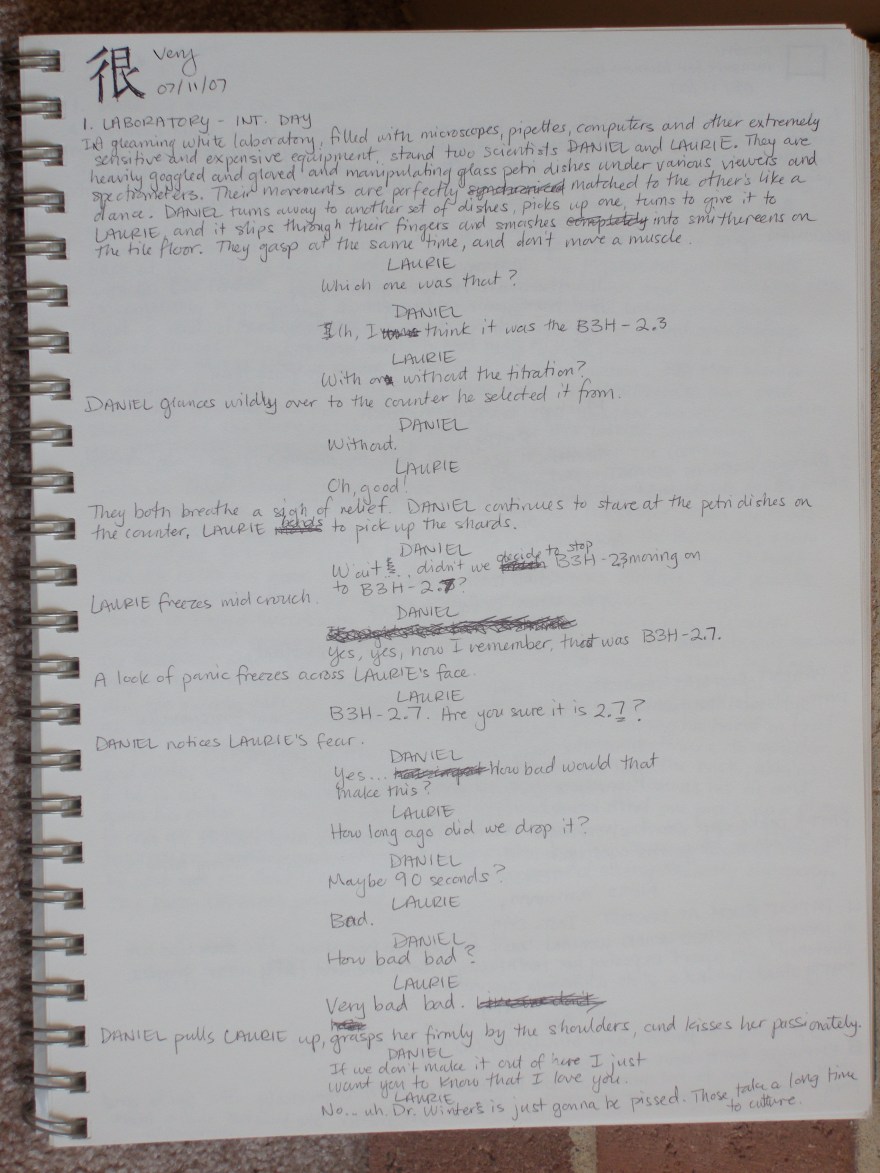 很 Very
07/11/07
1. LABORATORY - INT. DAY
In a gleaming white laboratory, filled with microscopes, pipettes, computers and other extremely
sensitive and expensive equipment, stand two scientists DANIEL and LAURIE. They are
heavily goggled and gloved and manipulating glass petri dishes under various viewers and
spectrometers. Their movements are perfectly synchronized matched to the other's like a
dance. DANIEL turns away to another set of dishes, picks up one, turns to give it to
LAURIE, and it slips through their fingers and smashes completely into smithereens on
the tile floor. They gasp at the same time, and don't move a muscle.
LAURIE
Which one was that?
DANIEL
Uh, I think it was the B3H-2.3
LAURIE
With or without the titration?
DANIEL glances wildly over to the counter he selected it from.
DANIEL
Without.
LAURIE
Oh, good!
They both breathe a sigh of relief. DANIEL continues to stare at the petri dishes on
the counter, LAURIE bends to pick up the shards.
DANIEL
Wait... didn't we decide to stop B3H-2.3 moving on
to B3H-2.7?
LAURIE freezes mid crouch.
DANIEL
Yes, yes, now I remember, that was B3H-2.7.
A look of panic freezes across LAURIE's face.
LAURIE
B3H-2.7. Are you sure it is 2.7?
DANIEL notices LAURIE'S fear.
DANIEL
Yes... How bad would that
make this?
LAURIE
How long ago did we drop it?
DANIEL
Maybe 90 seconds?
LAURIE
Bad.
DANIEL
How bad bad?
LAURIE
Very bad bad.
DANIEL pulls LAURIE up, grasps her firmly by the shoulders, and kisses her passionately.
DANIEL
If we don't make it out of here I just
want you to know that I love you.
LAURIE
No... uh Dr. Winters is just gonna be pissed. Those take a long time
to culture.